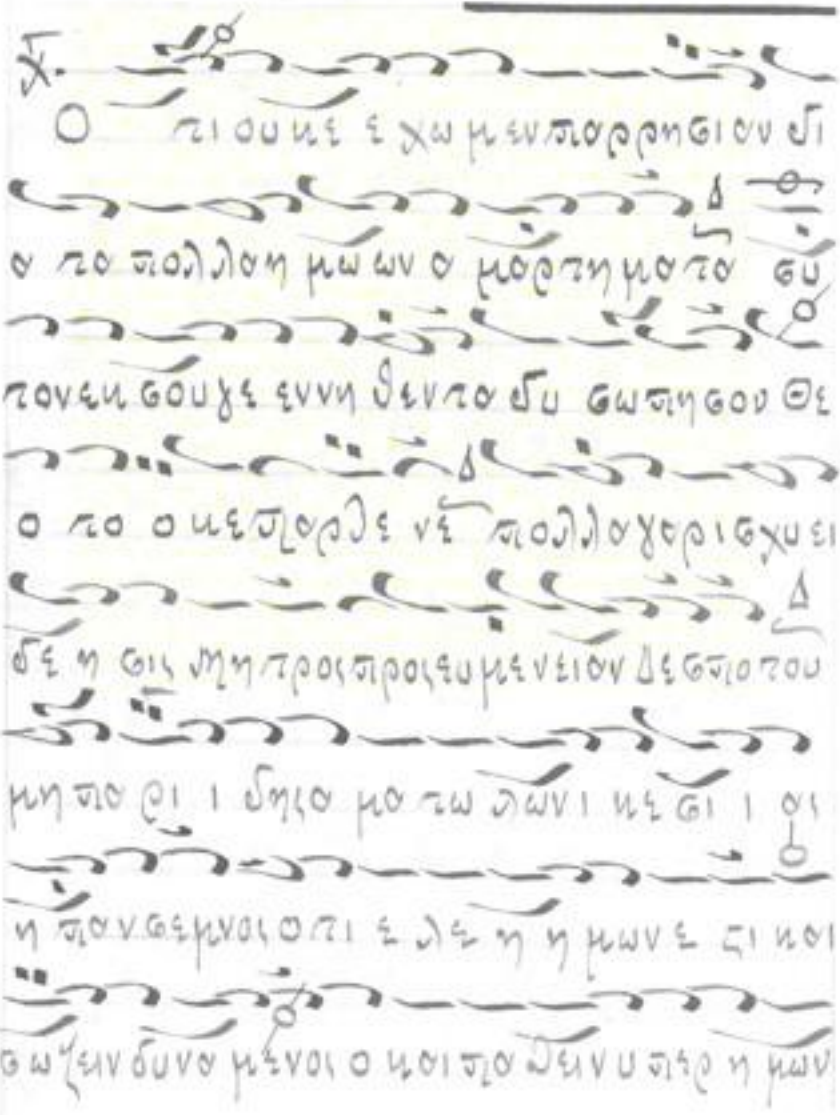 Ο τι ουκε ε χω μενπαρρησιαν δι
α τα πολλαη μω ων α μαρτηματα συ
τονεκ σουγε εννη θεντα δυ σωπησον Θε
ο το ο κεπαρθε νε πολλαγαρισχυει
δε η σις Μητροςπροςευμενειαν Δεσποτου
μη πα ρι ι δηςα μα τω λωνι κεσι ι ας
η πανσεμνοςοτι ε λε η η μωνε ϛι και
σωζειν δυνα μενος ο καιπα θειν υπερ η μων